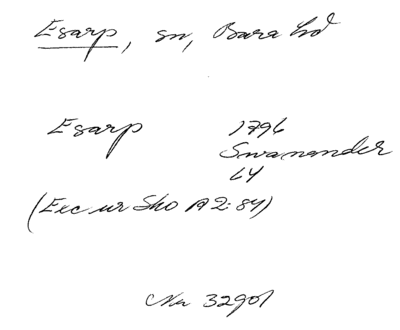 Esarp, sn, Bara hd
Esarp 1796
Swanander
64
(Exc ur Sko A 2:84)
Nu 32901